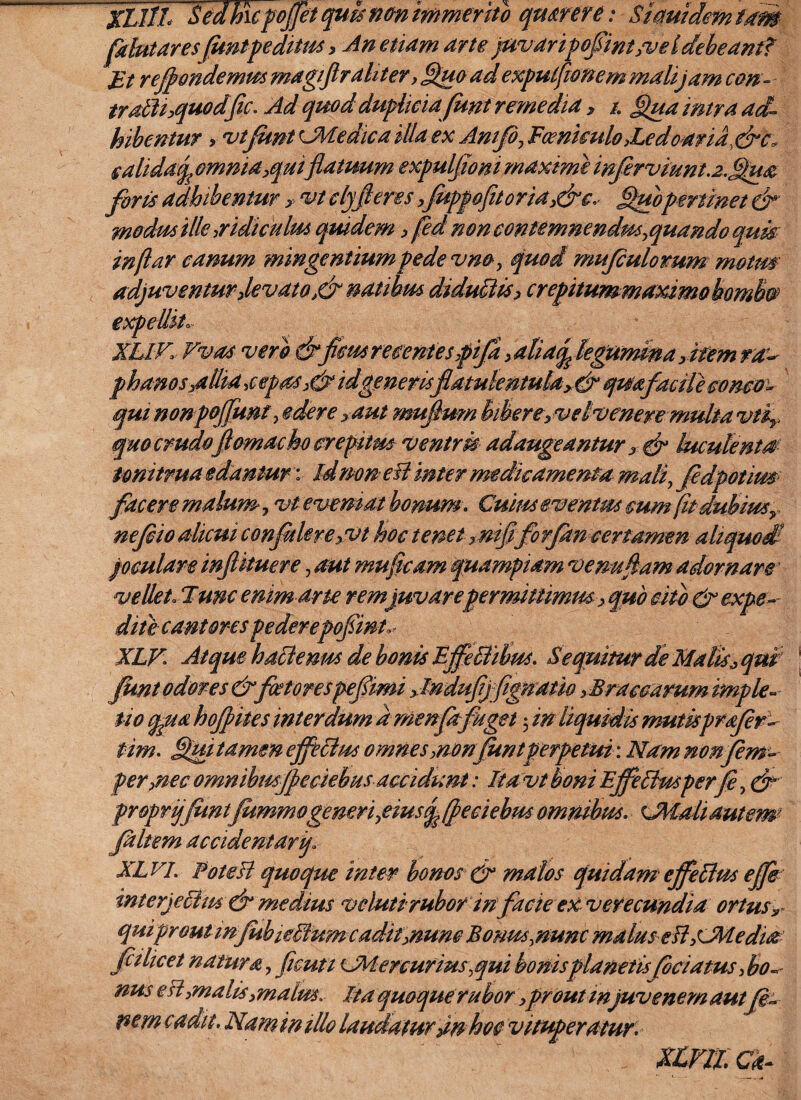 XLIII. Sed hîc posset quis non immerito quærere: Siquidem tam
salutares sunt peditus, An etiam arte juvari possint, vel debeant?
Et respondemus magistraliter, Quo ad expulsionem mali jam con-
tracti, quod sic. Ad quod duplicia sunt remedia, 1. Qua intra ad-
hibentur, vt sunt Medica illa ex Aniso, Fœniculo, Ledoaria, &c.
calidaq; omnia, qui flatuum expulsioni maximè inserviunt. 2. Quæ
foris adhibentur, vt clysteres, suppositoria, &c. Quò pertinet &
modus ille, ridiculus quidem, sed non contemnendus, quando quis
instar canum mingentium pede vno, quod musculorum motus
adjuventur, levato, & natibus diductis, crepitum maximo bombo
expellit.
XLIV. Vvas verò & ficus recentes, pisa, aliaq; legumina, item ra-
phanos, allia, cepas, & id generis flatulentula, & quæ facilè conco-
qui non possunt, edere, aut mustum bibere, vel venere multa vti,
quo crudo stomacho crepitus ventris adaugeantur, & luculenta
tonitrua edantur: Id non est inter medicamenta mali, sed potius
facere malum, vt eveniat bonum. Cuius eventus cum sit dubius,
nescio alicui consulere, vt hoc tenet, nisi forsan certamen aliquod
joculare instituere, aut musicam quampiam venustam adornare
vellet. Tunc enim arte rem juvare permittimus, quò citò & expe-
ditè cantores pedere possint.
XLV. Atque hactenus de bonis Effectibus. Sequitur de Malis, qui
sunt odores & fœtores pessimi, Indusij signatio, Braccarum imple-
tio quæ hospites interdum à mensa fuget; in liquidis mutis præser-
tim. Qui tamen effectus omnes, non sunt perpetui: Nam non sem-
per, nec omnibus speciebus accidunt: Ita vt boni Effectus per se, &
proprij sunt summo generi, eiusq; speciebus omnibus. Mali autem
saltem accidentarij.
XLVI. Potest quoque inter bonos & malos quidam effectus esse
interjectus & medius veluti rubor in facie ex verecundia ortus,
qui prout in subiectum cadit, nunc Bonus, nunc malus est, Mediæ
scilicet naturæ, sicuti Mercurius, qui bonis planetis sociatus, bo-
nus est, malis, malus. Ita quoque rubor, prout in juvenem aut se-
nem cadit. Nam in illo laudatur, in hoc vituperatur.
XLVII. Ca-